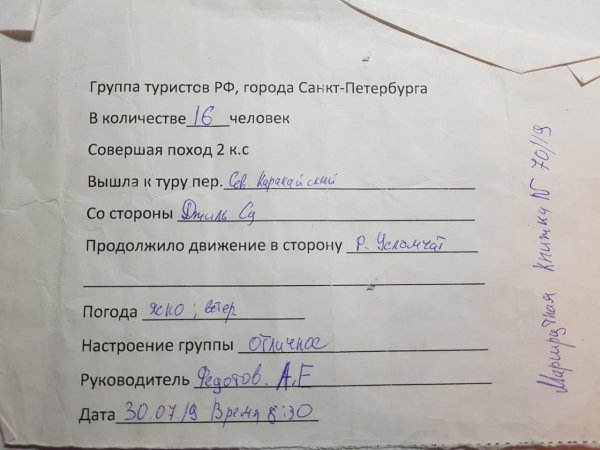 Группа туристов РФ, города Санкт-Петербурга
В количестве 16 человек
Совершая поход 2 к.с
Вышла к туру пер. Сев. Каракайский
Со стороны Джиль Су
Продолжило движение в сторону р. Усломчат
Погода ясно, ветер
Настроение группы отличное
Руководитель Федотов. А.Е
Дата 30.07.19 Время 8:30
Маршрутная книжка № 70/19